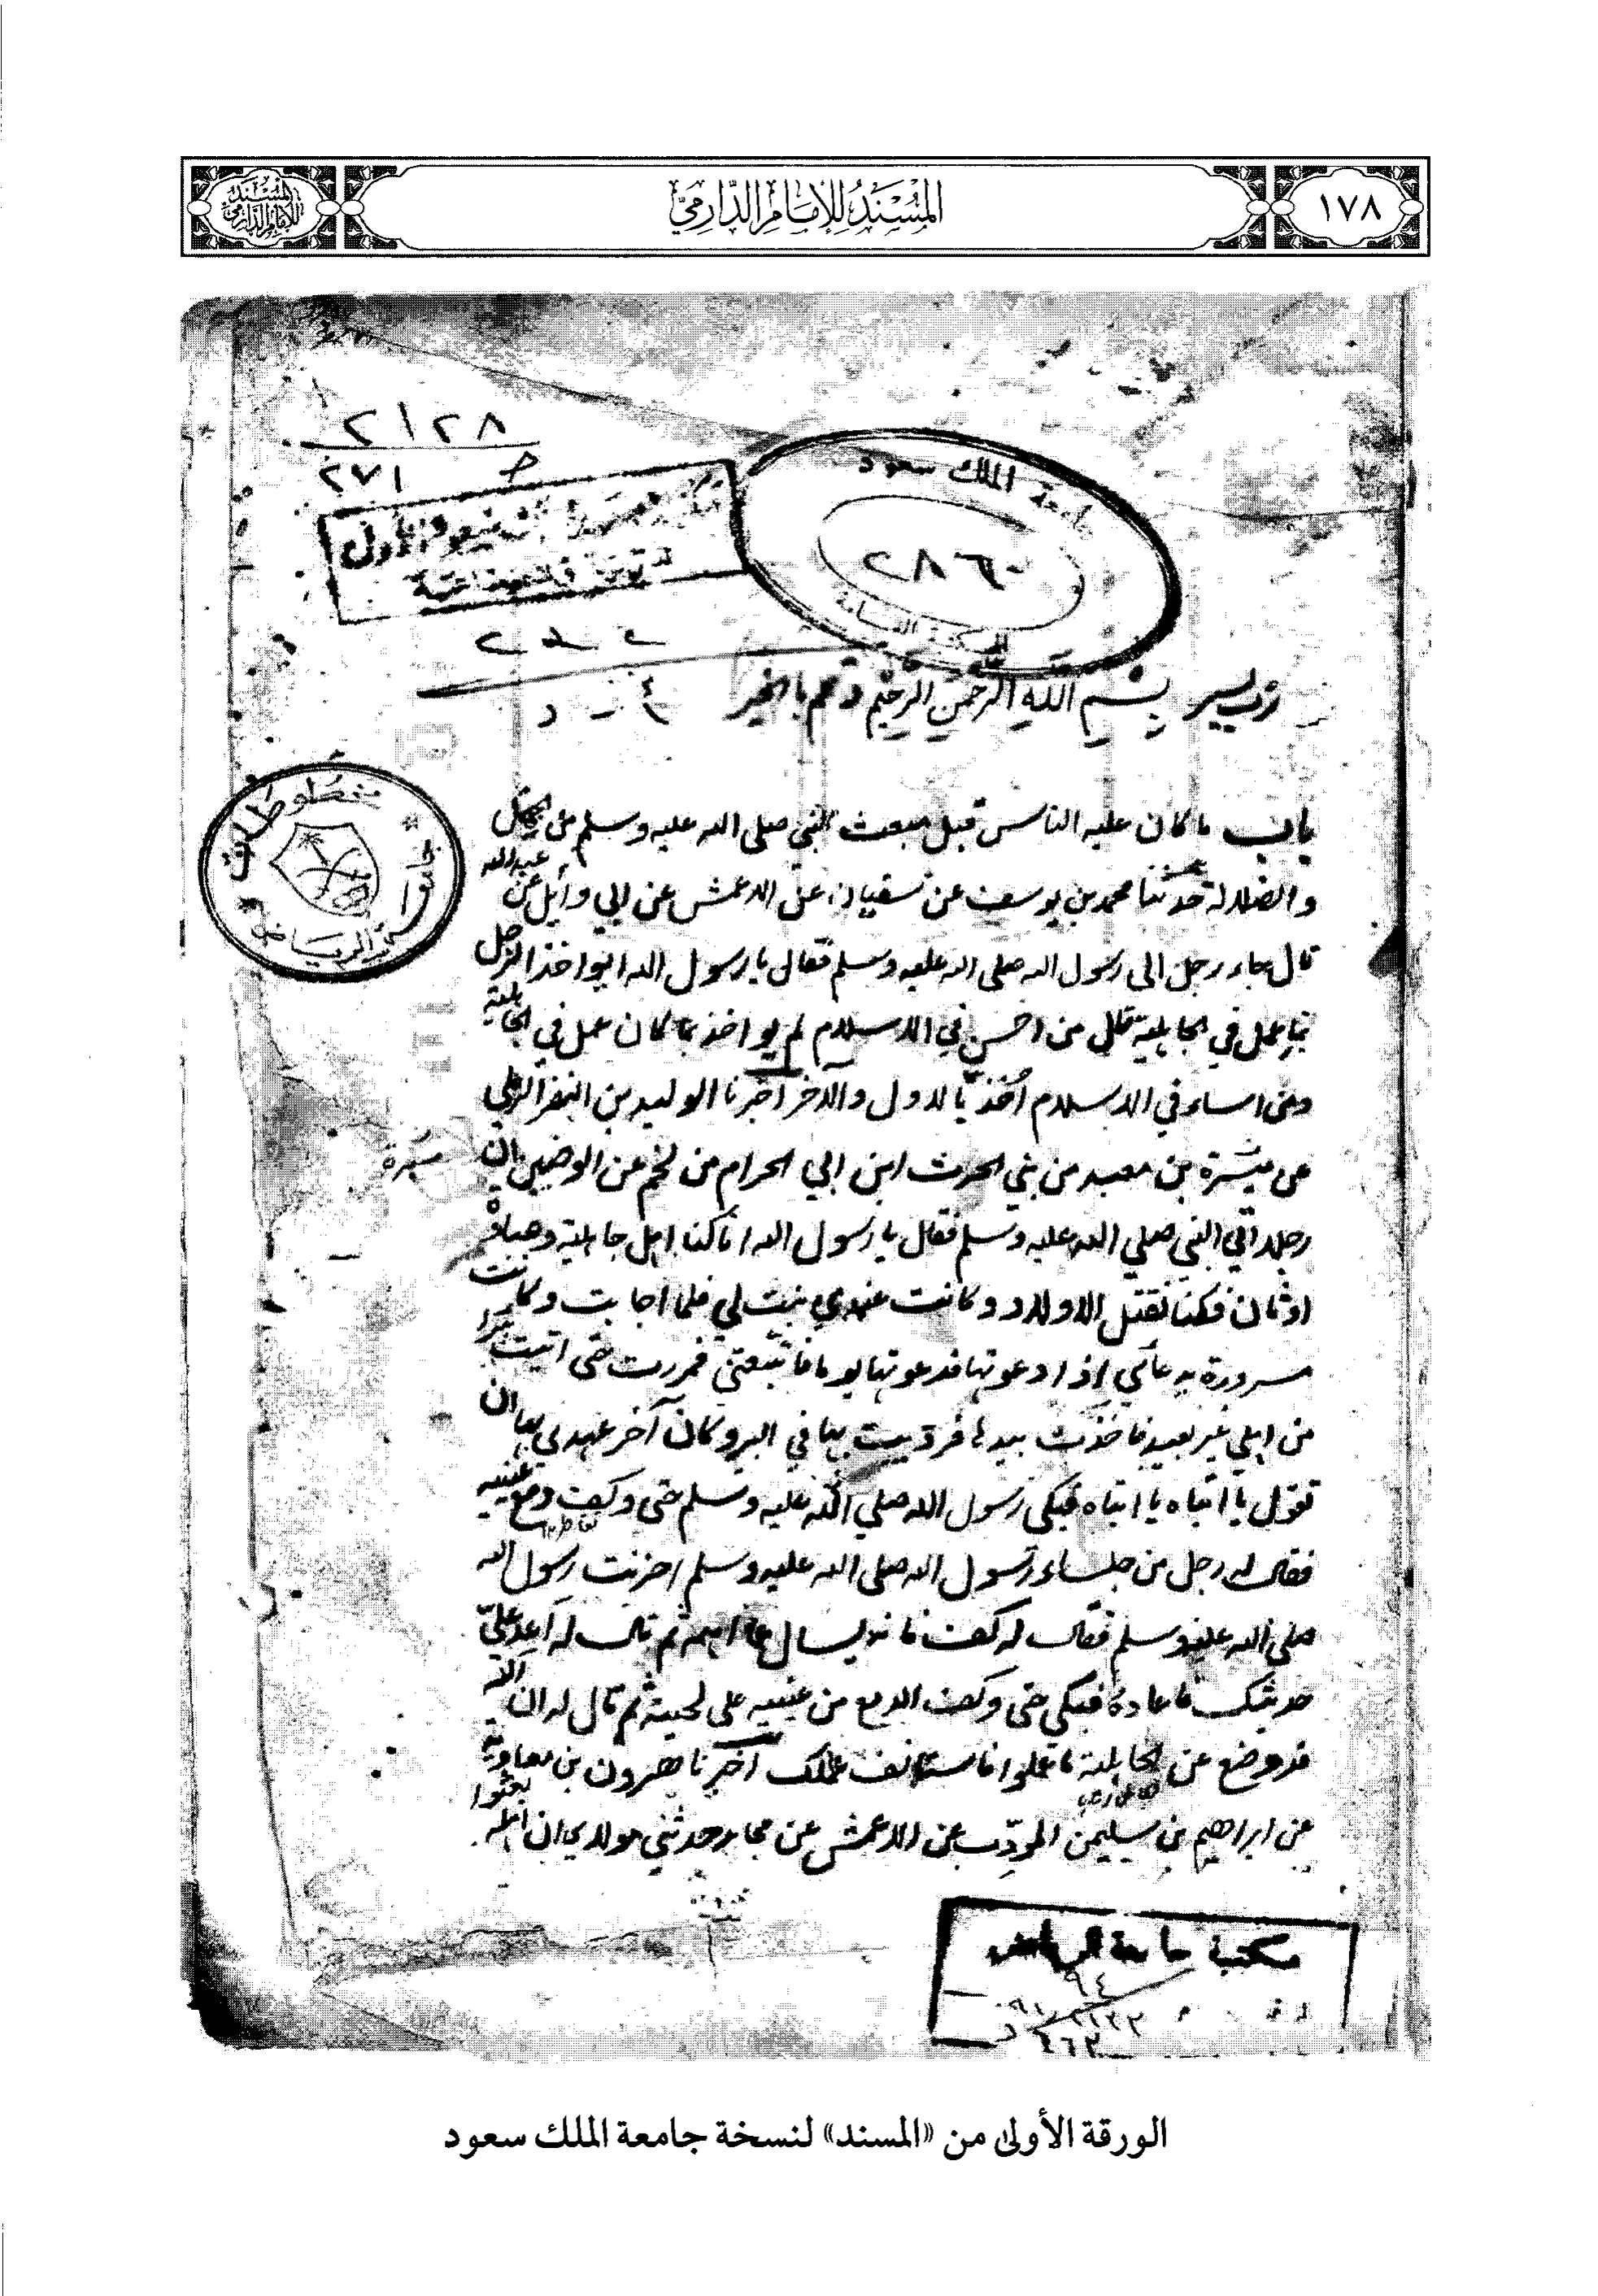 ١٧٨
المُسْنَدُ لِلإِمَامِ الدَّارِمِيِّ
المسند للإمام الدارمي
٢١٢٨
٢٧١
جامعة الملك سعود
٢٨٦٠
رب يسر بِسْمِ اللهِ الرَّحْمٰنِ الرَّحِيْمِ وتمم بالخير
مخطوطات
جامعة الرياض
باب ما كان عليه الناس قبل مبعث النبي صلى الله عليه وسلم من الجهل
والضلالة حدثنا محمد بن يوسف عن سفيان عن الاعمش عن ابي وايل عن عبدالله
قال جاء رجل الى رسول الله صلى الله عليه وسلم فقال يا رسول الله ايواخذ الرجل
بما عمل في الجاهلية قال من احسن في الاسلام لم يواخذ بما كان عمل في الجاهلية
ومن اساء في الاسلام اُخذ بالاول والآخر اخبرنا الوليد بن النضر الرملي
عن ميسرة بن معبد من بني الحرث ابن ابي الحرام من لخم عن الوضين ان
مسرة
رجلا اتى النبي صلي الله عليه وسلم فقال يا رسول الله انا كنا اهل جاهلية وعبادة
اوثان فكنا نقتل الاولاد وكانت عندي بنت لي فلما اجابت وكانت
مسرورة بدعائي اذا دعوتها فدعوتها يوما فاتبعتني فمررت حتى اتيت بئرا
من اهلي غير بعيد فاخذت بيدها فرديت بها في البر وكان آخر عهدي بها ان
تقول يا ابتاه يا ابتاه فبكى رسول الله صلي الله عليه وسلم حتى وكف دمع عينيه
فقال له رجل من جلساء رسول الله صلى الله عليه وسلم احزنت رسول الله
صلى الله عليه وسلم فقال له كف فانه يسال عما اهمه ثم قال له اَعِد عليَّ
حديثك فاعاده فبكي حتى وكف الدمع من عينيه على لحيته ثم قال له ان الله
قد وضع عن الجاهلية ما عملوا فاستانف عملك اخبرنا هرون بن معاوية
عن ابراهيم بن سليمن المؤدِّب عن الاعمش عن مجاهد حدثني مولاي ان اهله بعثوا
مكتبة جامعة الرياض
الورقة الأولى من «المسند» لنسخة جامعة الملك سعود